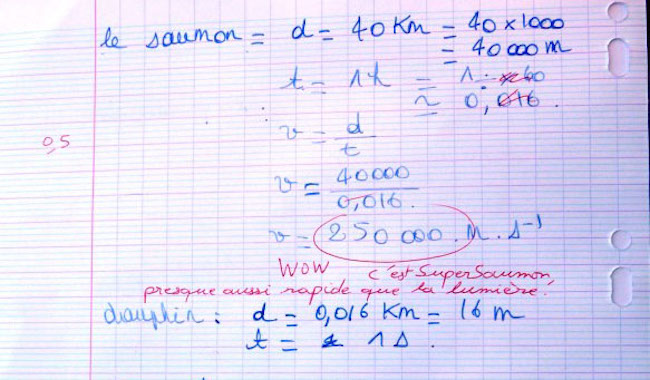 le saumon = d = 40 Km = 40 x 1000
= 40 000 m
t = 1h = 1 : 60
≈ 0,016.
0,5
v = d/t
v = 40000/0,016.
v = 250 000. m. s⁻¹
WOW c'est SuperSaumon,
presque aussi rapide que la lumière!
dauphin : d = 0,016 Km = 16 m
t = 1 s.